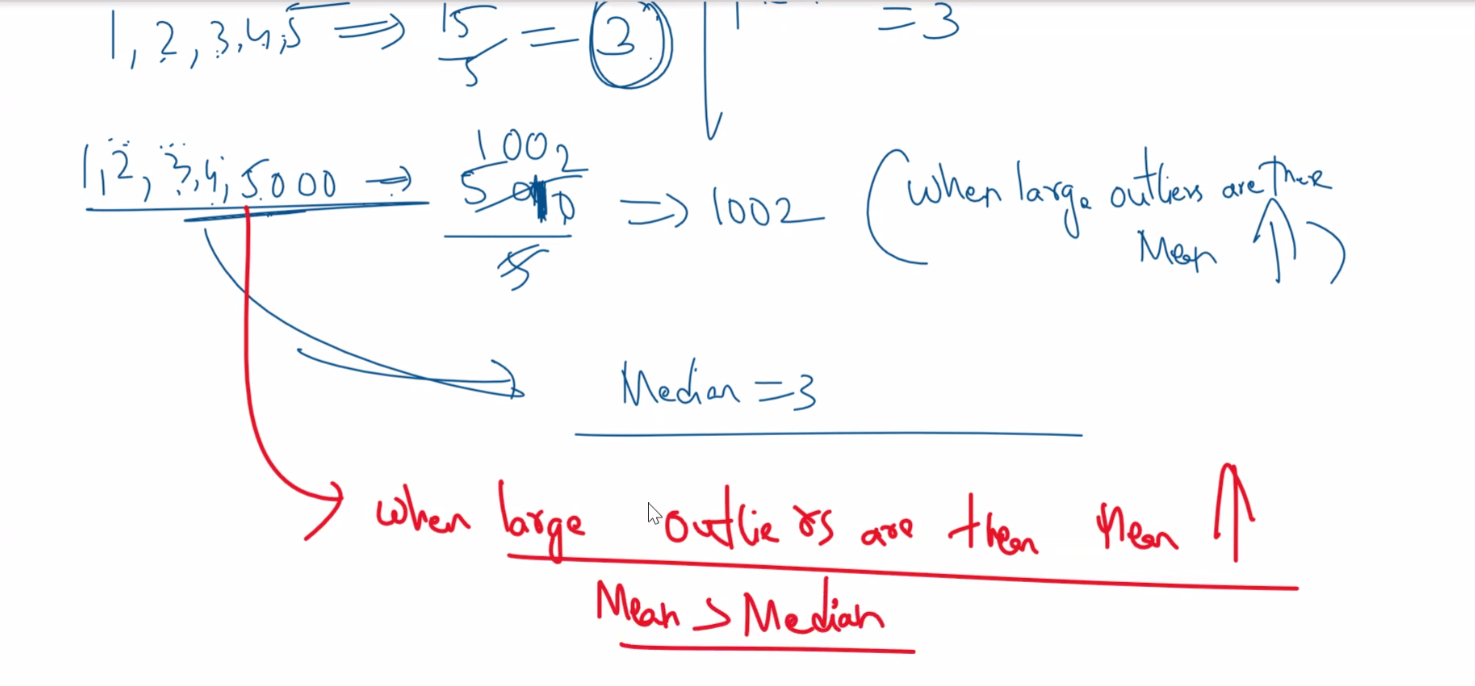 1, 2, 3, 4, 5 ⇒ 15/5 = 3
= 3
1, 2, 3, 4, 5000 → 5010/5 ⇒ 1002
1002
(when large outliers are there
Mean ↑)
Median = 3
when large outliers are then Mean ↑
Mean > Median